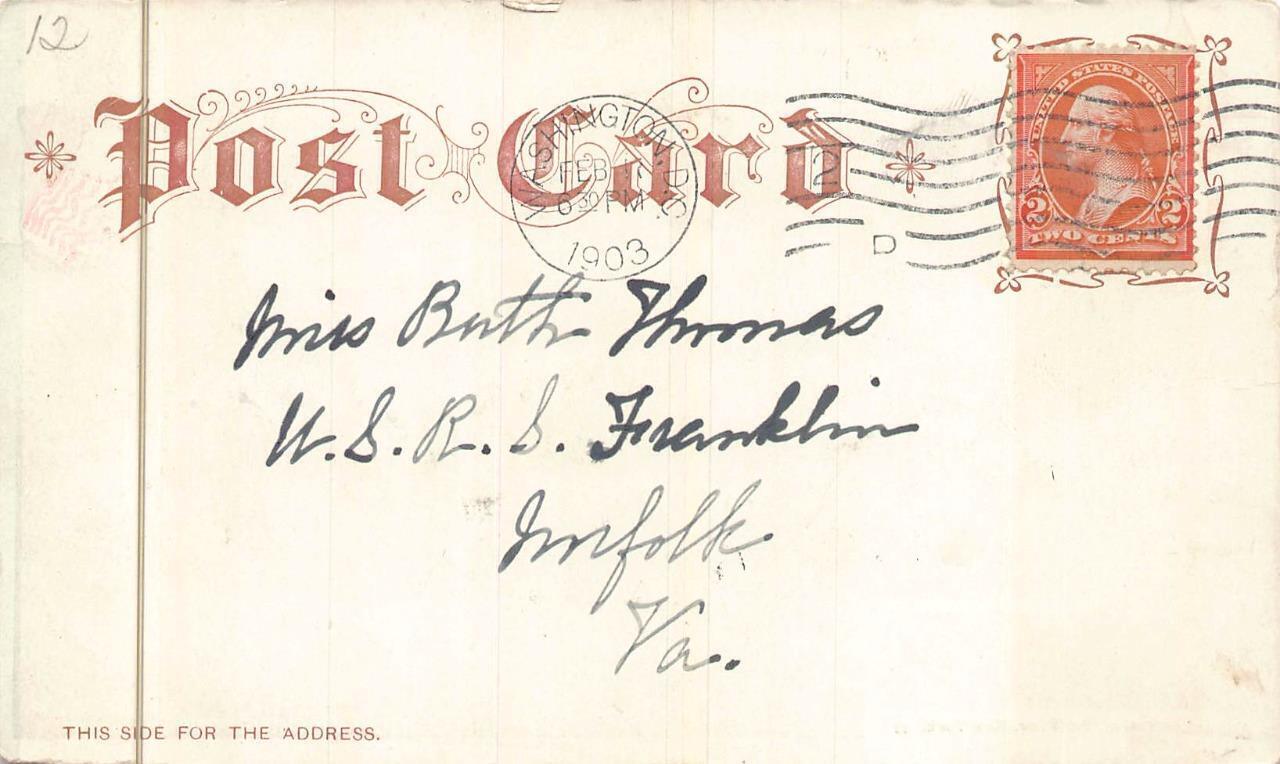 12
Post Card
WASHINGTON, D.C.
FEB 1
6 30 PM
1903
2
D
UNITED STATES POSTAGE
2 2
TWO CENTS
Miss Ruth Thomas
U.S.R.S. Franklin
Norfolk
Va.
THIS SIDE FOR THE ADDRESS.